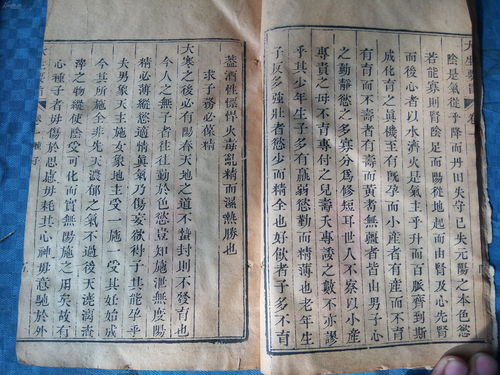 大生要旨 卷一
陰是氣從乎降而丹田失守已失元陽之本色慾
若能寡則腎陰足而陽從地起而由腎及心先腎
而後心者以水濟火是氣主乎升而百脈齊到斯
成化育之眞機至有既孕而小產者有產而不育
有育而不壽者有壽而黃耇無疆者皆由男子心
之動靜慾之多寡分為修短耳世人不察以小產
專責之母不育專付之兒壽夭專諉之數不亦謬
乎其少年生子多有羸弱慾勤而精薄也老年生
子反多強壯者慾少而精全也好飲者子多不育
蓋酒性慓悍火毒亂精而濕熱勝也
求子務必葆精
大寒之後必有陽春天地之道不蟄封則不發育也
今人之無子者往往勤於色慾豈知施泄無度陽
精必薄縱慾適情眞氣乃傷妄欲得子其能孕乎
夫男象天主施女象地主受一施一受其妊始成
今其所施全非先天濃郁之氣不過後天漉漓渣
滓之物縱使陰受可化而實無陽施之用矣故有
心種子者毋傷於思慮毋耗其心神毋意馳於外
大生要旨 卷一 種子